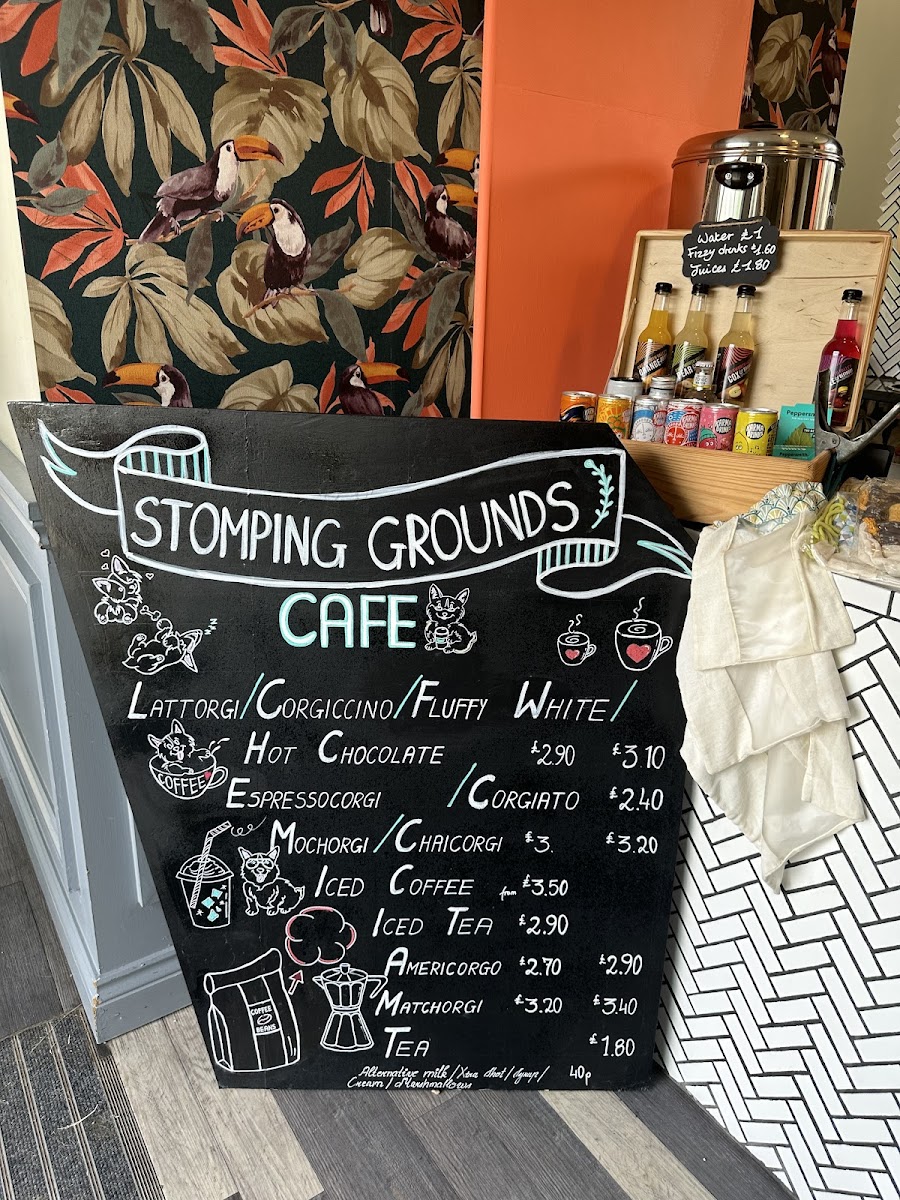 Water £1
Fizzy drinks £1.60
Juices £1.80
STOMPING GROUNDS
CAFE
LATTORGI/CORGICCINO/FLUFFY WHITE/
HOT CHOCOLATE £2.90 £3.10
ESPRESSOCORGI /CORGIATO £2.40
COFFEE
MOCHORGI/CHAICORGI £3. £3.20
ICED COFFEE from £3.50
ICED TEA £2.90
AMERICORGO £2.70 £2.90
MATCHORGI £3.20 £3.40
COFFEE
BEANS
TEA £1.80
Alternative milk/Xtra shot/Syrup/ 40p
Cream/Marshmallows